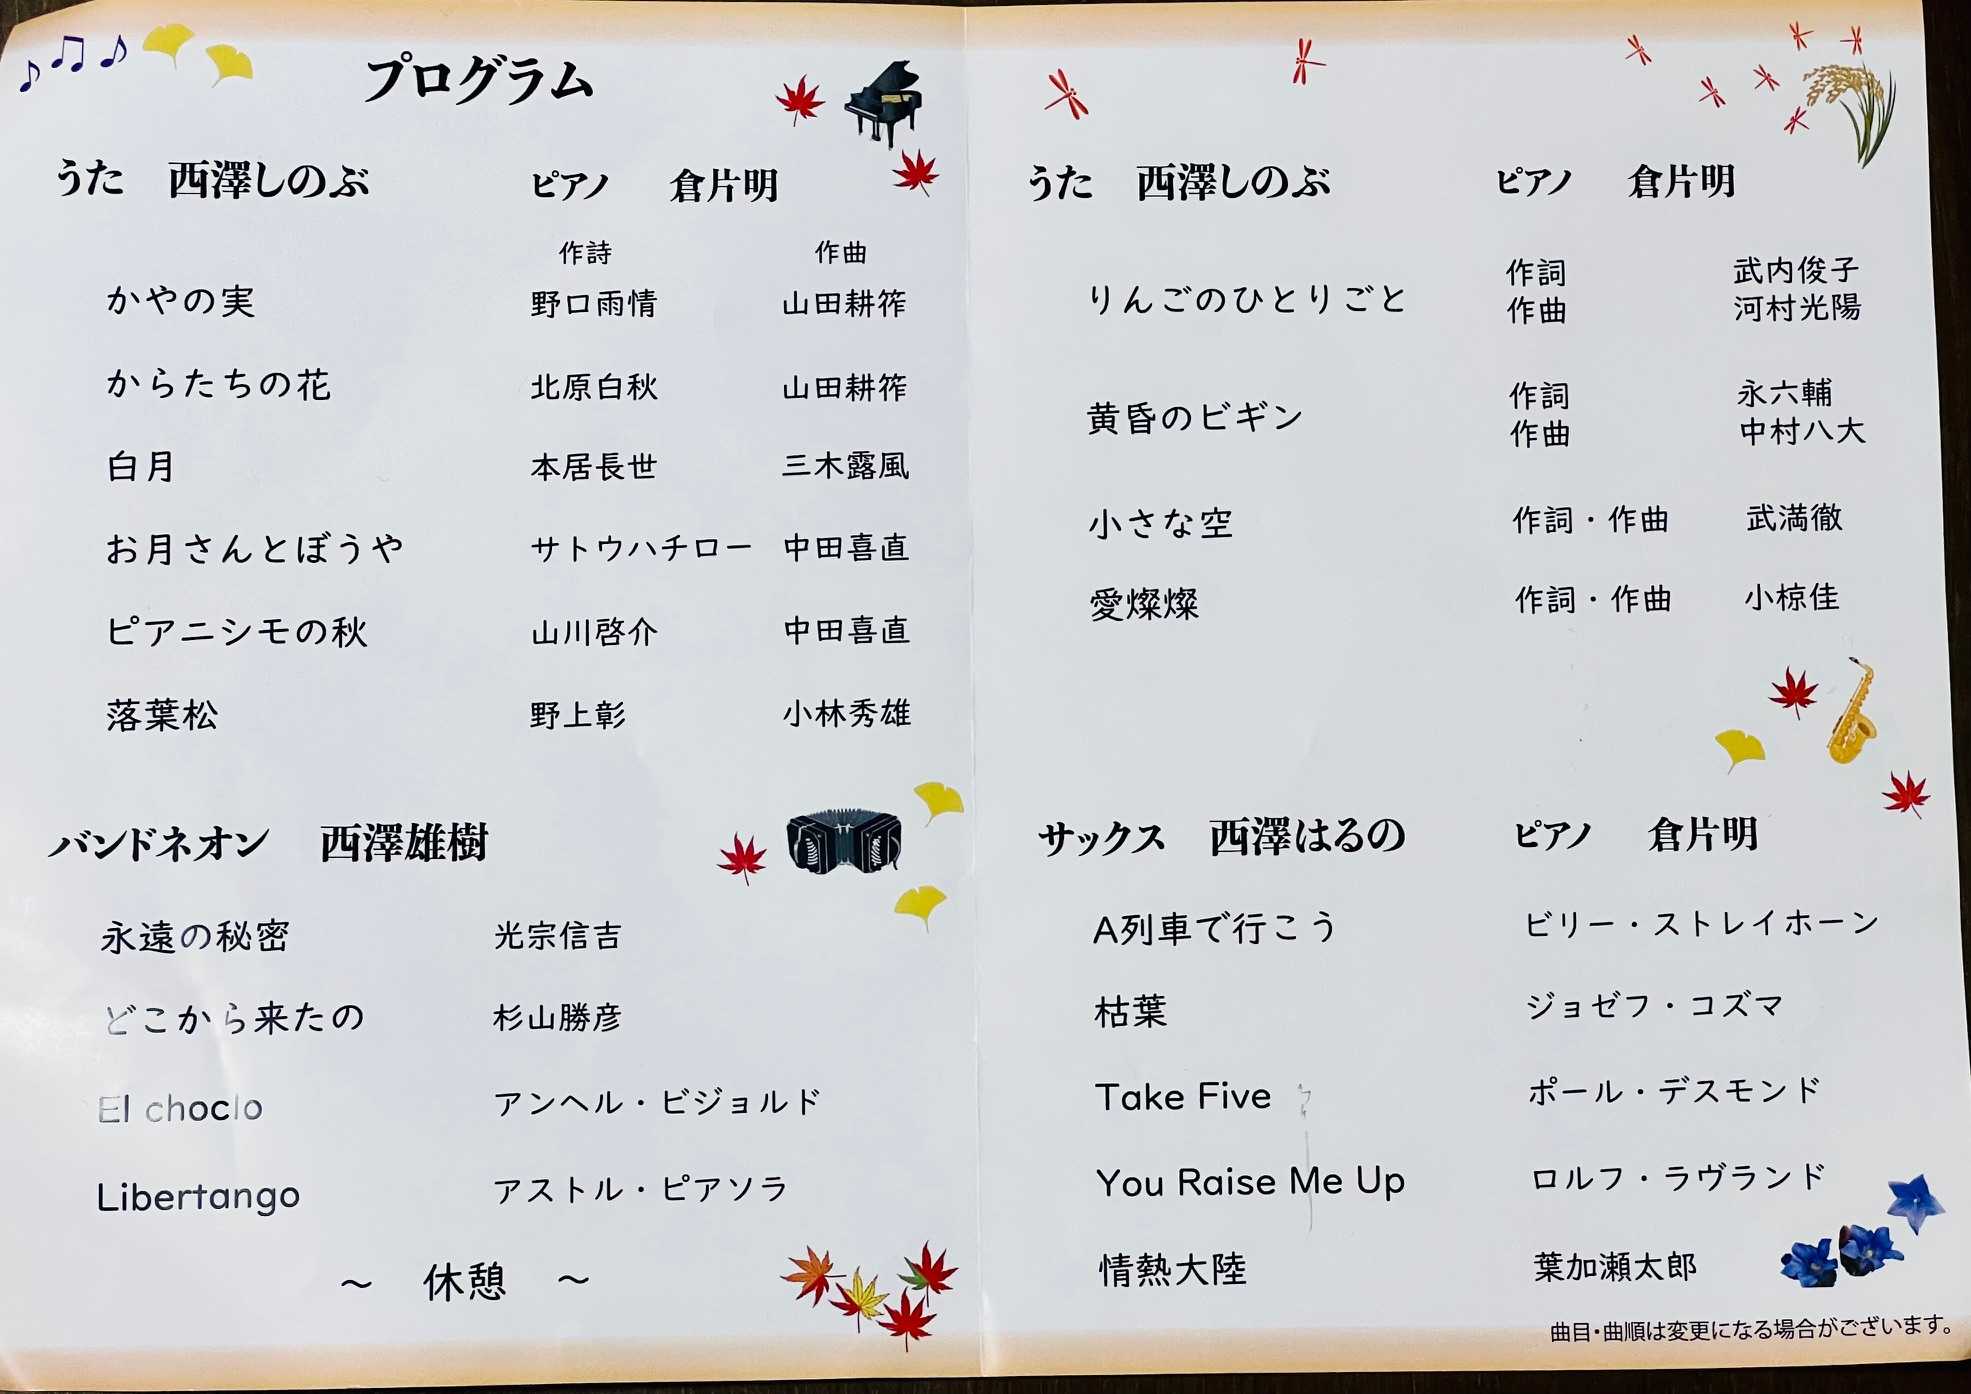 プログラム
うた 西澤しのぶ ピアノ 倉片明
作詩 作曲
かやの実 野口雨情 山田耕筰
からたちの花 北原白秋 山田耕筰
白月 本居長世 三木露風
お月さんとぼうや サトウハチロー 中田喜直
ピアニシモの秋 山川啓介 中田喜直
落葉松 野上彰 小林秀雄
バンドネオン 西澤雄樹
永遠の秘密 光宗信吉
どこから来たの 杉山勝彦
El choclo アンヘル・ビジョルド
Libertango アストル・ピアソラ
～ 休憩 ～
うた 西澤しのぶ ピアノ 倉片明
りんごのひとりごと 作詞 武内俊子
作曲 河村光陽
黄昏のビギン 作詞 永六輔
作曲 中村八大
小さな空 作詞・作曲 武満徹
愛燦燦 作詞・作曲 小椋佳
サックス 西澤はるの ピアノ 倉片明
A列車で行こう ビリー・ストレイホーン
枯葉 ジョゼフ・コズマ
Take Five ポール・デスモンド
You Raise Me Up ロルフ・ラヴランド
情熱大陸 葉加瀬太郎
曲目・曲順は変更になる場合がございます。